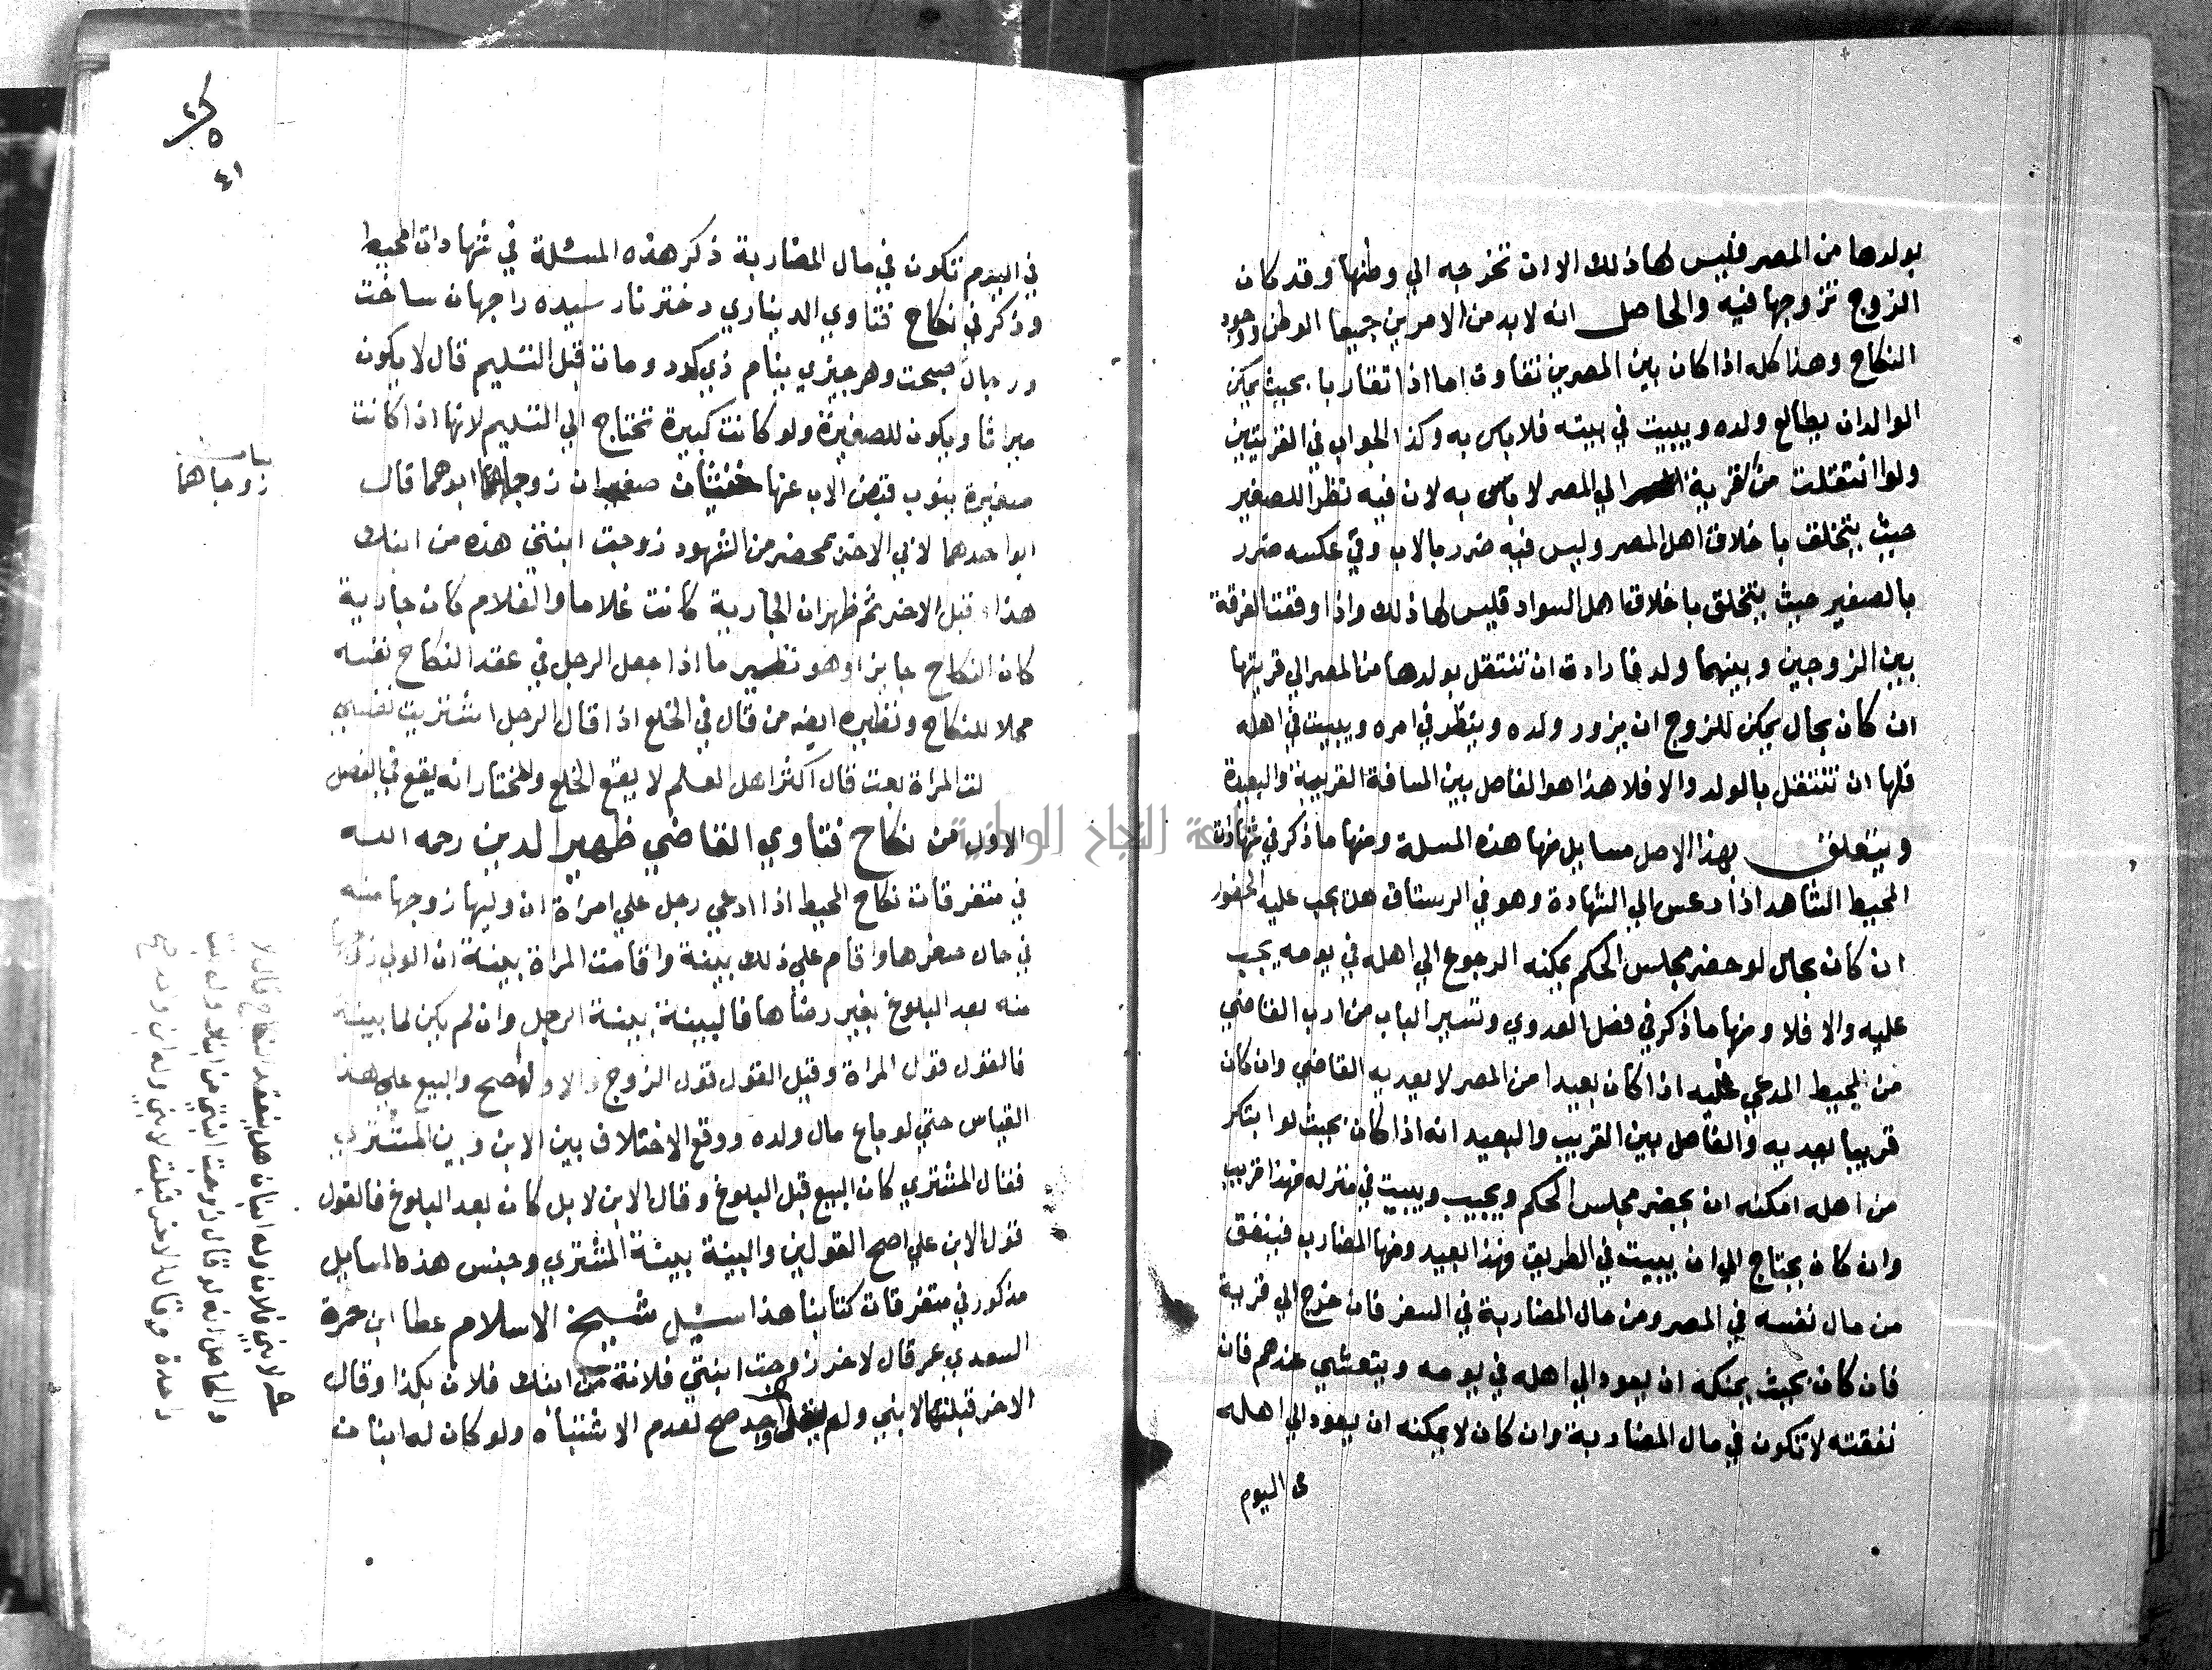 بولدها من المصر فليس لها ذلك الا ان تخرجه الي وطنها وقد كان
الزوج تزوجها فيه والحاصل انه لابد من الامرين جميعا الوطن ووجود
النكاح وهذا كله اذا كان بين المصرين تفاوت اما اذا تقاربا بحيث يمكن
الوالد ان يطالع ولده ويبيت في بيته فلا باس به وكذا الجواب في القريتين
ولو انتقلت من قرية الي المصر لا باس به لان فيه نظرا للصغير
حيث يتخلق باخلاق اهل المصر وليس فيه ضرر بالاب وفي عكسه ضرر
بالصغير حيث يتخلق باخلاق اهل السواد فليس لها ذلك واذا وقفت الفرقة
بين الزوجين وبينهما ولد فارادت ان تنتقل بولدها من المصر الي قريتها
ان كان بحال يمكن للزوج ان يزور ولده وينظر في امره ويبيت في اهله
فلها ان تنتقل بالولد والا فلا هذا هو الفاصل بين المسافة القريبة والبعيدة
ويتعلق بهذا الاصل مسايل منها هذه المسلة ومنها ما ذكر في شهادات
المحيط الشاهد اذا دعي الي الشهادة وهو في الرستاق هل يجب عليه الحضور
ان كان بحال لو حضر مجلس الحكم يمكنه الرجوع الي اهله في يومه يجب
عليه والا فلا ومنها ما ذكر في فصل العدوي وتسمير الباب من ادب القاضي
من المحيط المدعي عليه اذا كان بعيدا من المصر لا يعديه القاضي وان كان
قريبا يعديه والفاصل بين القريب والبعيد انه اذا كان بحيث لو ابتكر
من اهله امكنه ان يحضر مجلس الحكم ويجيب ويبيت في منزله فهذا قريب
وان كان يحتاج الي ان يبيت في الطريق فهذا بعيد ومنها المضارب فينفق
من مال نفسه في المصر ومن مال المضاربة في السفر فان خرج الي قرية
فان كان بحيث يمكنه ان يعود الي اهله في يومه ويتعشي عندهم فان
نفقته لا تكون في مال المضاربة وان كان لا يمكنه ان يعود الي اهله
في اليوم
٤١
في اليوم تكون في مال المضاربة ذكر هذه المسئلة في شهادات المحيط
وذكر في نكاح فتاوي الديناري دختر نارسيده را جهان ساخت
وهر جيزي بنام وي كرد ومات قبل التسليم قال لا يكون
ميراثا ويكون للصغيرة ولو كانت كبيرة تحتاج الي التسليم لانها اذا كانت
صغيرة ينوب قبض الاب عنها صغيران زوجاهما ابوهما قال
ابو احدهما لابي الاخر بمحضر من الشهود زوجت ابنتي هذه من ابنك
هذا وقبل الاخر ثم ظهر ان الجارية كانت غلاما والغلام كان جارية
كان النكاح جايزا وهو نظير ما اذا جعل الرجل في عقد النكاح نفسه
محلا للنكاح ونظيره ايضه من قال في الخلع اذا قال الرجل اشتريت نفسي
المراة بعت قال اكثر اهل العلم لا يقع الخلع والمختار انه يقع في الفصل
الاول من نكاح فتاوي القاضي ظهير الدين رحمه الله
في متفرقات نكاح المحيط اذا ادعي رجل علي امراة ان وليها زوجها منه
في حال صغرها واقام علي ذلك بينة واقامت المراة بينة ان الولي زوجها
منه بعد البلوغ بغير رضاها فالبينة بينة الرجل وان لم يكن لها بينة
فالقول قول المراة وقيل القول قول الزوج والاول اصح والبيع علي هذا
القياس حتي لو باع مال ولده ووقع الاختلاف بين الابن وبين المشتري
فقال المشتري كان البيع قبل البلوغ وقال الابن لا بل كان بعد البلوغ فالقول
قول الابن علي اصح القولين والبينة بينة المشتري وجنس هذه المسايل
مذكور في متفرقات كتابنا هذا سئل شيخ الاسلام عطا ابن حمزة
السعدي عمن قال لاخر زوجت ابنتي فلانة من ابنك فلان بكذا وقال
الاخر قبلتها لابني ولم صح لعدم الاشتباه ولو كان له ابنان
زوجاهما